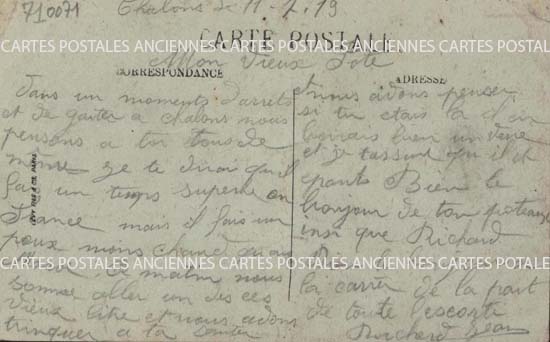 710071
Chalons le 11-7.19
CARTE POSTALE
Mon Vieux Pote
CORRESPONDANCE
ADRESSE
ANCIENNES CARTES POSTALES ANCIENNES CARTES POSTALES ANCIENNES CARTES
Dans un moments d'arrets
et de gaiter a chalons nous
pensons a toi tous de
même je te dirai qu'il
fait un temps superbe en
France mais il fais un
peux moins chaud
matin nous
sommes aller un des ces
vieux litre et nous avons
trinquer a ta santé
et nous avons penser
si tu etais la
boirais bien un verre
et je t'assure qu'il et
Bien le
bonjour de ton poteau
insi que Richard
ANCIENNES CARTES POSTALES ANCIENNES CARTES POSTALES ANCIENNES CARTES
la de la part
de toute l'escorte
Richard Jean